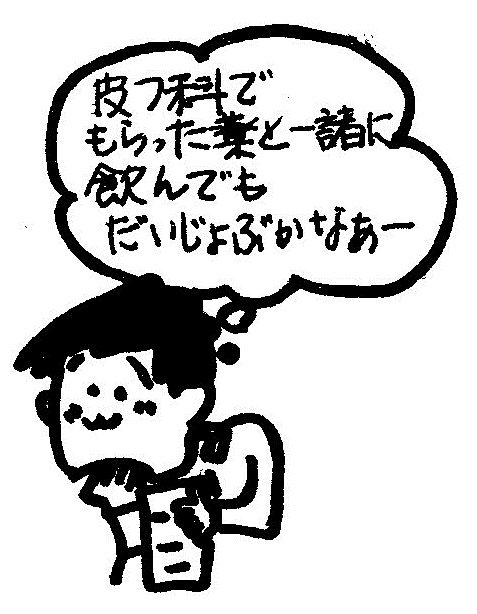 皮フ科で
もらった薬と一諸に
飲んでも
だいじょぶかなぁー